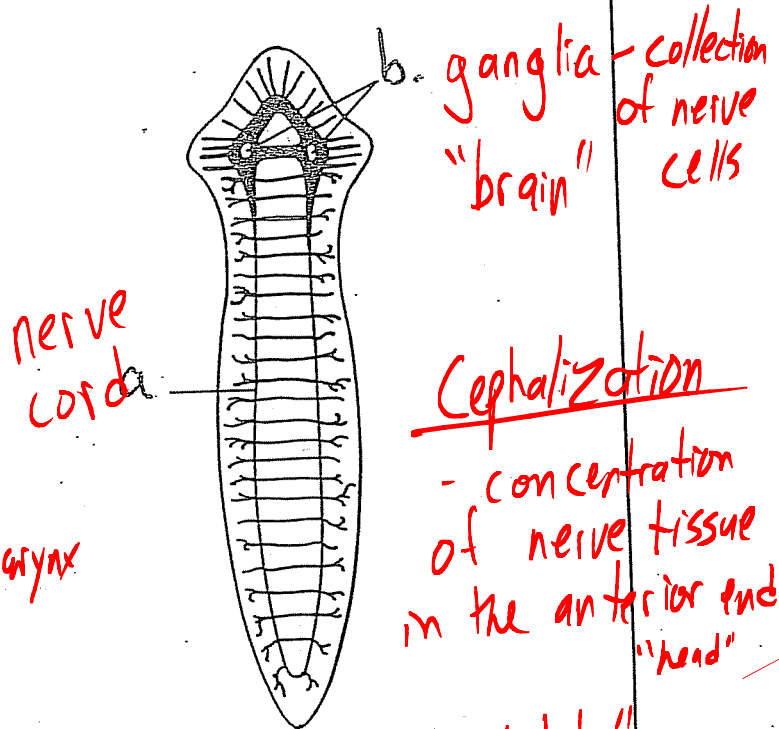 b. ganglia - collection
of nerve
"brain" cells
nerve
cord a.
Cephalization
- concentration
of nerve tissue
in the anterior end
"head"